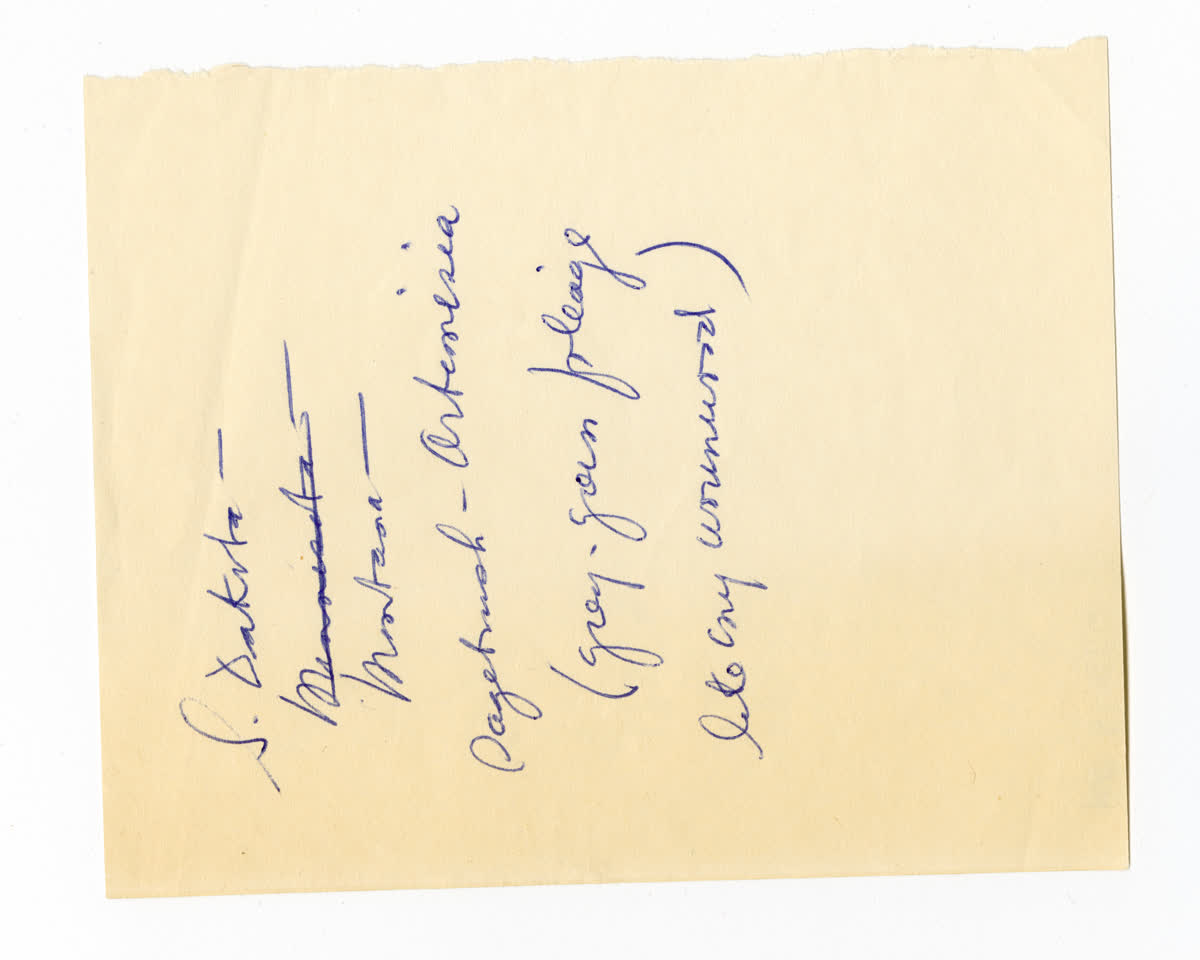 S. Dakota —
Minnesota —
Montana —
Sagebrush — Artemisia
(grey-green foliage
like any wormwood)